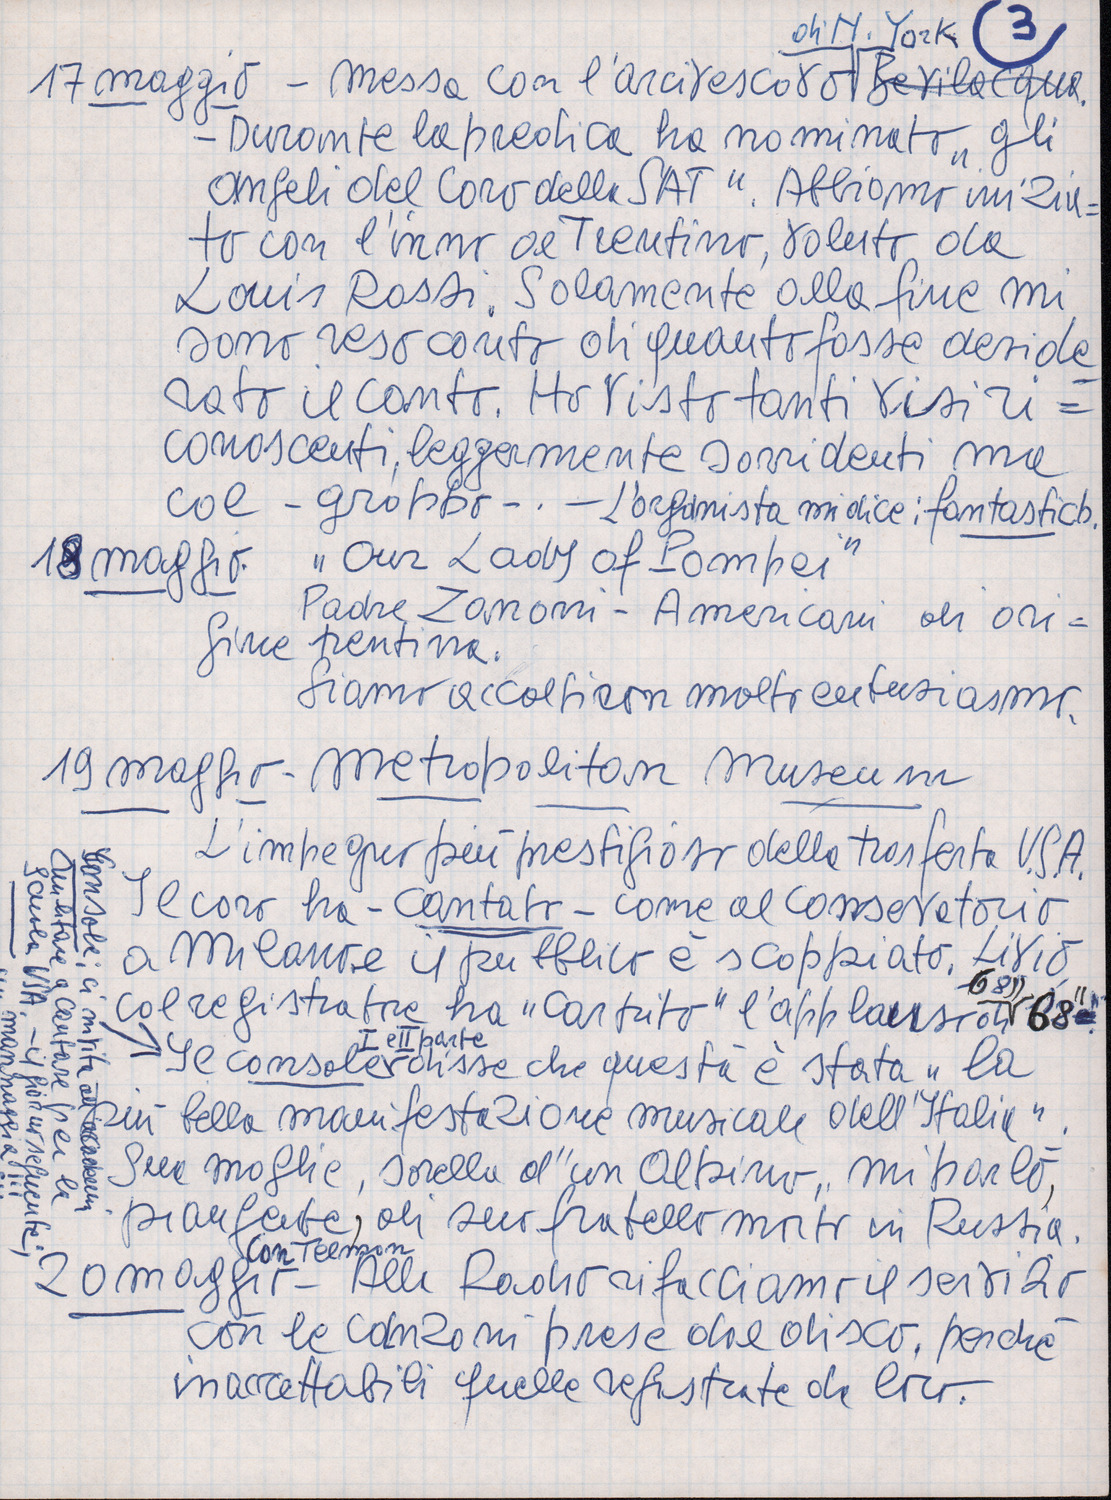 di N. York 3
17 maggio - Messa con l'arcivescovo Bevilacqua.
- Durante la predica ha nominato „gli
angeli del Coro della SAT". Abbiamo inizia=
to con l'inno al Trentino, voluto da
Louis Rossi. Solamente alla fine mi
sono reso conto di quanto fosse deside
rato il canto. Ho visto tanti visi ri=
conoscenti, leggermente sorridenti ma
col - groppo -. - L'organista mi dice: fantastico.
18 maggio. „Our Lady of Pompei"
Padre Zanoni - Americani di ori=
gine trentina.
Siamo accolti con molto entusiasmo.
19 maggio - Metropolitan Museum
L'impegno più prestigioso della trasferta U.S.A.
Il coro ha - cantato - come al Conservatorio
a Milano e il pubblico è scoppiato. Livio
col registratore ha "carpito" l'applauso di 68"
I e II parte
Il console disse che questa è stata „la
più bella manifestazione musicale dell'Italia".
Sua moglie, sorella d'un Alpino, mi parlò,
piangente, di suo fratello morto in Russia.
Console: ci invita
a cantare per la
Scuola USA. - il giorno seguente;
mannaggia!!!
con Telmon
20 maggio - Alla Radio rifacciamo il servizio
con le canzoni prese dal disco, perché
inaccettabili quelle registrate da loro.